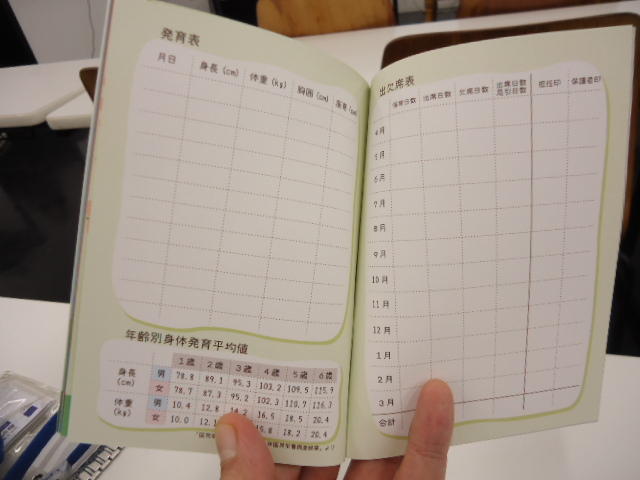 発育表
月日 身長(cm) 体重(kg) 胸囲(cm) (cm)
年齢別身体発育平均値
1歳 2歳 3歳 4歳 5歳 6歳
身長(cm) 男 78.8 89.1 95.3 103.2 109.5 115.9
女 78.7 87.3 95.2 102.3
体重(kg) 男 10.4 12.8 16.5 18.5 20.4
女 10.0 12.1 15.8 18.2 20.4
出欠席表
保育日数 出席日数 欠席日数 出席日数 担任印 保護者印
4月
5月
6月
7月
8月
9月
10月
11月
12月
1月
2月
3月
合計